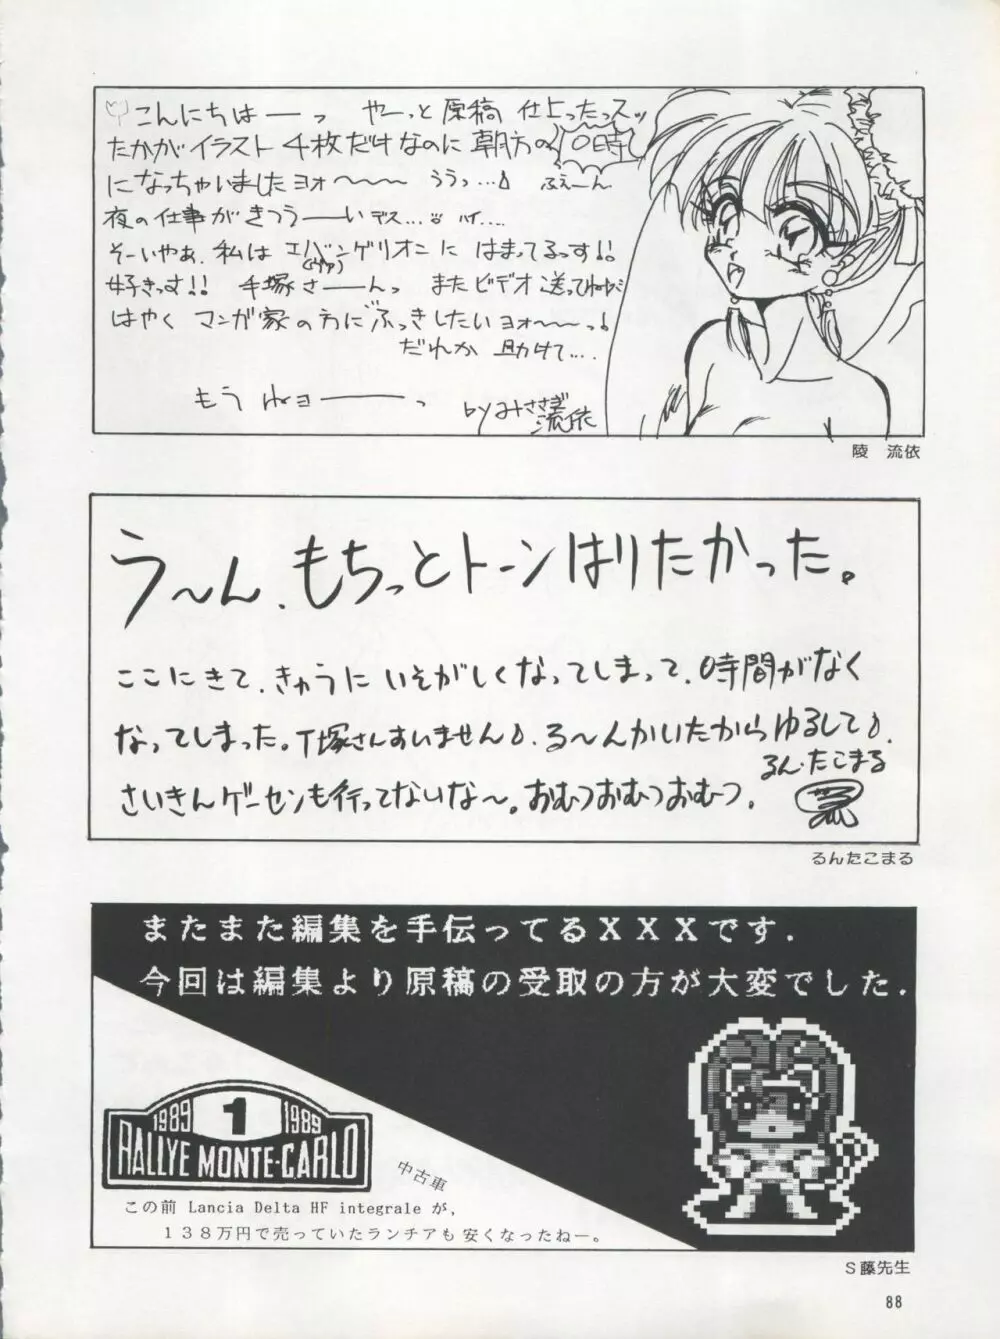 こんにちはーーっ やーっと原稿仕上ったっスッ
たかがイラスト4枚だけなのに朝方の10時
になっちゃいましたヨォ〜〜〜 ううっ…♪ ふぇーん
夜の仕事がきつうーーいデス… ハイ….
そーいやぁ、私はエバンゲリオンに はまってるっす!!
(ヴァ)
好きっす!! 手塚さーーんっ またビデオ送ってねっ
はやく マンガ家の方にふっきしたいヨォ〜〜っ♪
だれか 助けて….
もう ねヨーーーっ
by みささぎ
流依
陵 流依
う〜ん、もちっとトーンはりたかった。
ここにきて、きゅうにいそがしくなってしまって、時間がなく
なってしまった。T塚さんすいません♪、る〜んかいたからゆるして♪.
るん・たこまる
さいきんゲーセンも行ってないな〜。おむつおむつおむつ.
るんたこまる
またまた編集を手伝ってるXXXです.
今回は編集より原稿の受取の方が大変でした.
1989 1 1989
RALLYE MONTE-CARLO
中古車
この前 Lancia Delta HF integrale が,
138万円で売っていたランチアも安くなったねー。
S藤先生
88